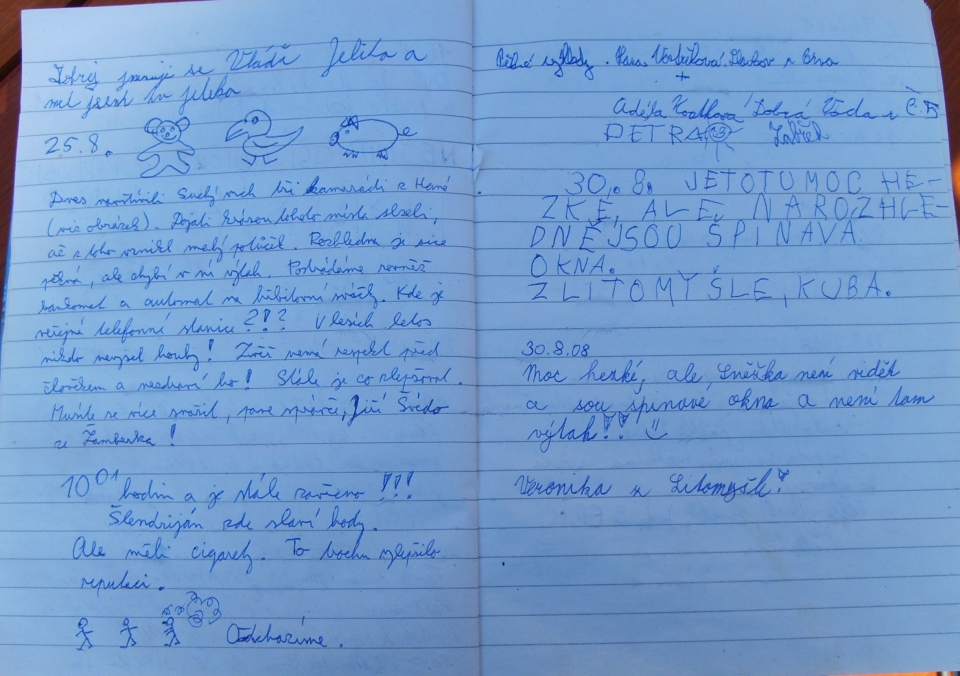 se Vládá Jelita a
mel jsem tu jeleka
25.8.
Dnes navštívili Suchý vrch tři kamarádi z Hané
(viz obrázek). Dojati krásou tohoto místa slzeli,
až z toho vznikl malý potůček. Rozhledna je sice
pěkná, ale chybí v ní výtah. Postrádáme rovněž
bankomat a automat na balónky. Kde je
veřejná telefonní stanice?!? V lesích letos
nikdo nevysel houby! Zvěř nemá respekt před
člověkem a nezdraví ho! Stále je co zlepšovat.
Musíte se více snažit, pane správče, Jiří Švédo
ze Žamberka!
10⁰¹ hodin a je stále zavřeno!!!
Šlendriján zde slaví hody.
Ale měli cigarety. To trochu zlepšilo
reputaci.
Odcházíme.
výhledy. Hana z Brna
+
Adéla Dobrá Voda u Č.B
PETRA Zábřeh
30.8. JETOTU MOC HE-
ZKÉ, ALE NA ROZHLE-
DNĚ JSOU ŠPINAVÁ
OKNA.
Z LITOMYŠLE, KUBA.
30.8.08
Moc hezké, ale, Sněžka není vidět
a sou špinave okna a není tam
výtah!!
Veronika z Litomyšle!